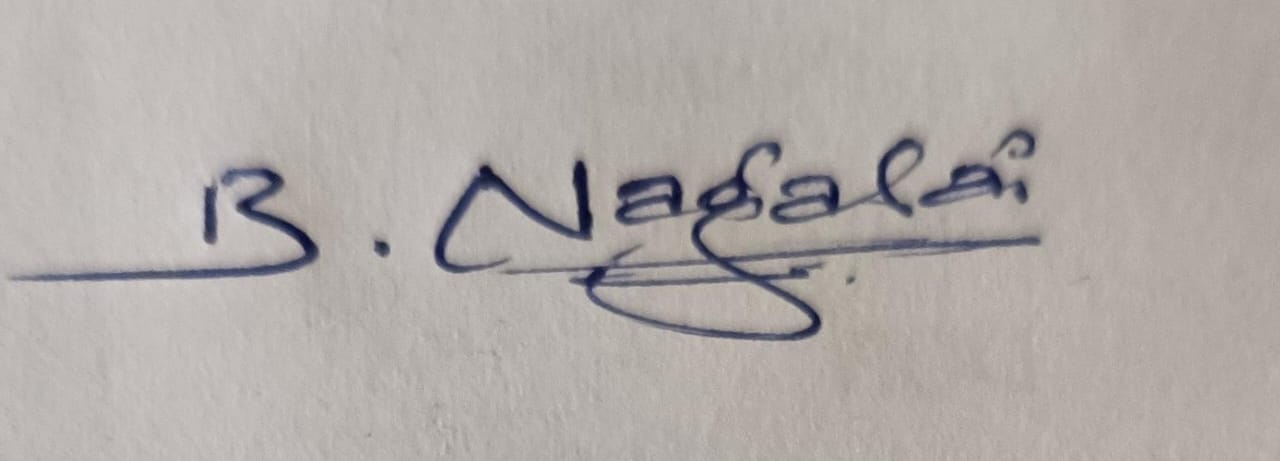 B. Nagalai